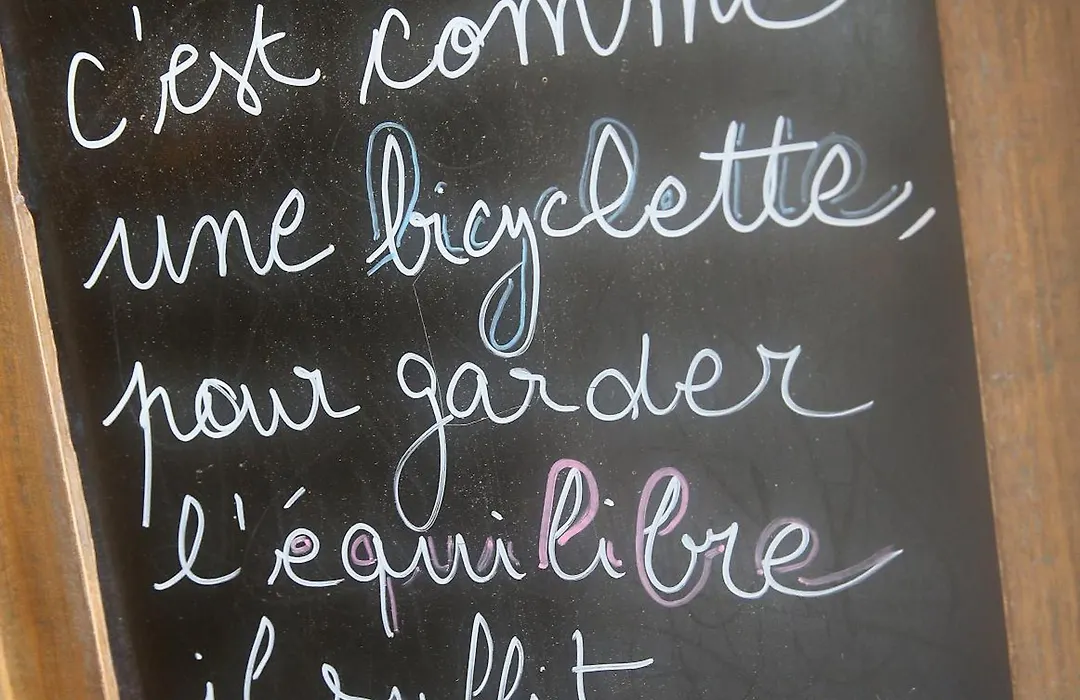 c'est comme
une bicyclette,
pour garder
l'équilibre
il suffit